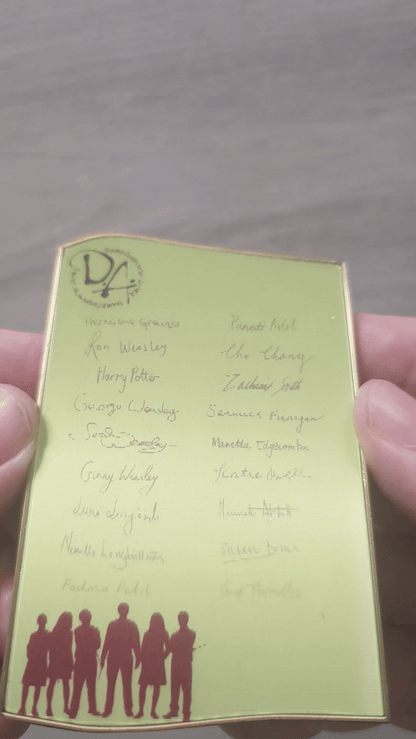 D.A.
Hermione Granger
Ron Weasley
Harry Potter
George Weasley
Fred Weasley
Ginny Weasley
Luna Lovegood
Neville Longbottom
Padma Patil
Parvati Patil
Cho Chang
Zacharias Smith
Seamus Finnigan
Marietta Edgecombe
Katie Bell
Hannah Abbott
Susan Bones